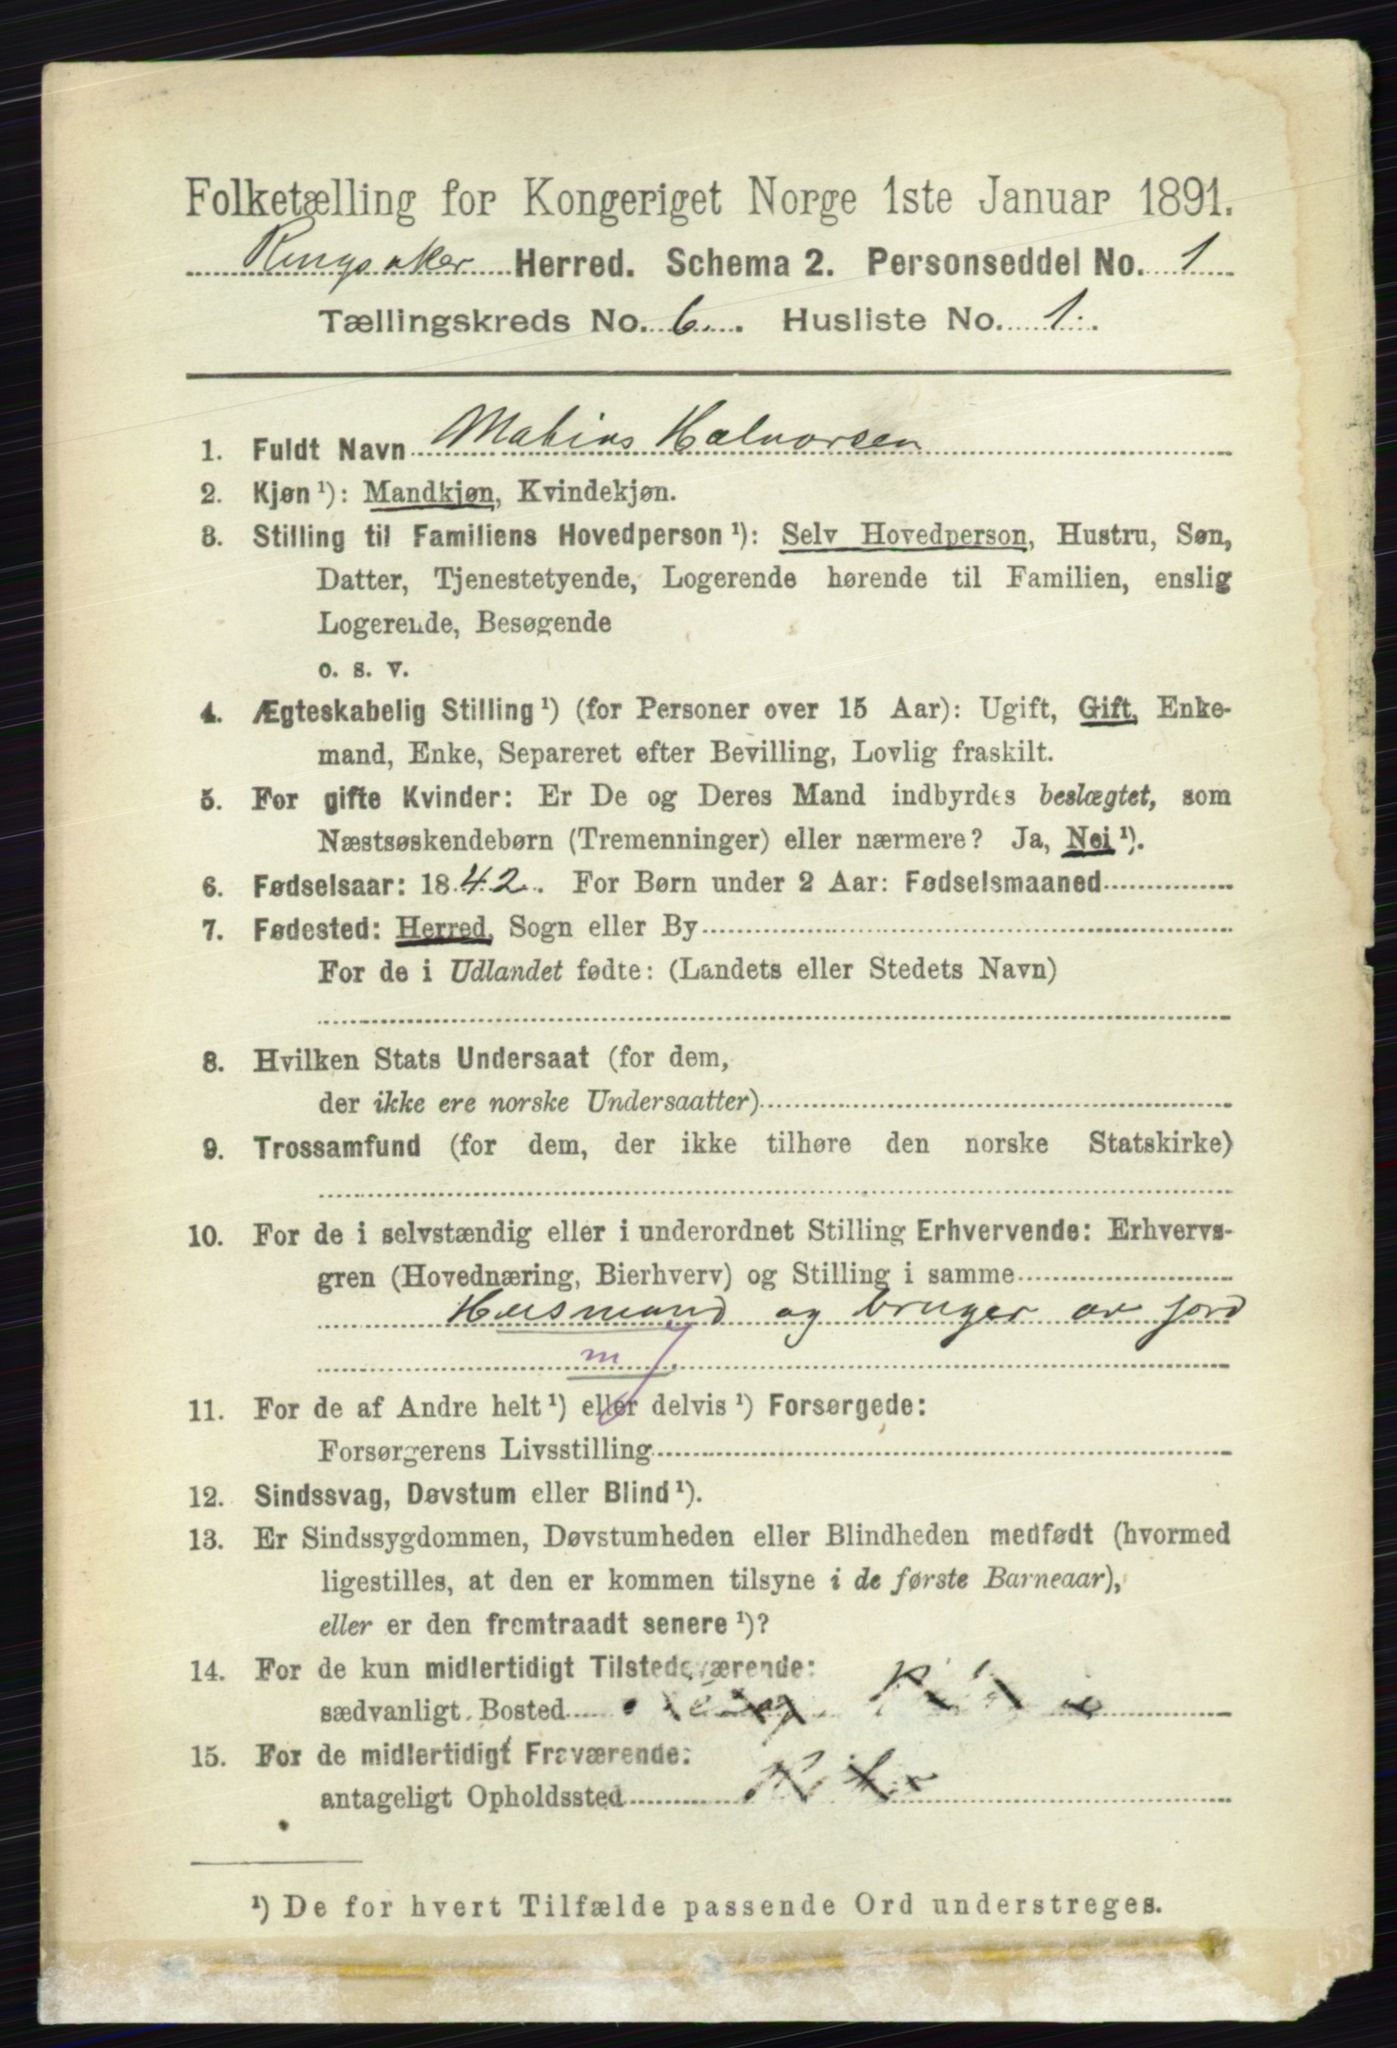 Folketælling for Kongeriget Norge 1ste Januar 1891.
Ringsaker Herred. Schema 2. Personseddel No. 1
Tællingskreds No. 6. Husliste No. 1.
1. Fuldt Navn Matius Halvorsen
2. Kjøn ¹): Mandkjøn, Kvindekjøn.
3. Stilling til Familiens Hovedperson ¹): Selv Hovedperson, Hustru, Søn,
Datter, Tjenestetyende, Logerende hørende til Familien, enslig
Logerende, Besøgende
o. s. v.
4. Ægteskabelig Stilling ¹) (for Personer over 15 Aar): Ugift, Gift, Enke-
mand, Enke, Separeret efter Bevilling, Lovlig fraskilt.
5. For gifte Kvinder: Er De og Deres Mand indbyrdes beslægtet, som
Næstsøskendebørn (Tremenninger) eller nærmere? Ja, Nei ¹).
6. Fødselsaar: 1842. For Børn under 2 Aar: Fødselsmaaned
7. Fødested: Herred, Sogn eller By
For de i Udlandet fødte: (Landets eller Stedets Navn)
8. Hvilken Stats Undersaat (for dem,
der ikke ere norske Undersaatter)
9. Trossamfund (for dem, der ikke tilhøre den norske Statskirke)
10. For de i selvstændig eller i underordnet Stilling Erhvervende: Erhvervs-
gren (Hovednæring, Bierhverv) og Stilling i samme
Husmand og bruger av jord
m
11. For de af Andre helt ¹) eller delvis ¹) Forsørgede:
Forsørgerens Livsstilling
12. Sindssvag, Døvstum eller Blind ¹).
13. Er Sindssygdommen, Døvstumheden eller Blindheden medfødt (hvormed
ligestilles, at den er kommen tilsyne i de første Barneaar),
eller er den fremtraadt senere ¹)?
14. For de kun midlertidigt Tilstedeværende:
sædvanligt Bosted
15. For de midlertidigt Fraværende:
antageligt Opholdssted
¹) De for hvert Tilfælde passende Ord understreges.